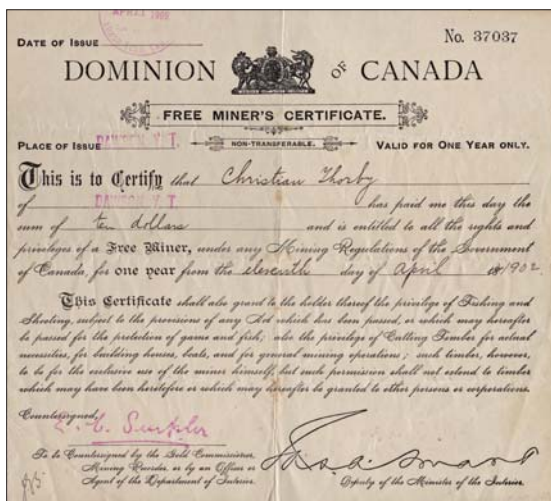 APR 11 1902
No. 37037
DATE OF ISSUE
DOMINION OF CANADA
FREE MINER'S CERTIFICATE.
PLACE OF ISSUE DAWSON, Y. T. NON-TRANSFERABLE. VALID FOR ONE YEAR ONLY.
This is to Certify that Christian Thorby
of DAWSON Y T has paid me this day the
sum of ten dollars and is entitled to all the rights and
privileges of a Free Miner, under any Mining Regulations of the Government
of Canada, for one year from the eleventh day of April 1902
This Certificate shall also grant to the holder thereof the privilege of Fishing and
Shooting, subject to the provisions of any Act which has been passed, or which may hereafter
be passed for the protection of game and fish; also the privilege of Cutting Timber for actual
necessities, for building houses, boats, and for general mining operations; such timber, however,
to be for the exclusive use of the miner himself, but such permission shall not extend to timber
which may have been heretofore or which may hereafter be granted to other persons or corporations.
Countersigned,
To be Countersigned by the Gold Commissioner,
Mining Recorder, or by an Officer or
Agent of the Department of Interior.
Jas. A. Smart
Deputy of the Minister of the Interior.